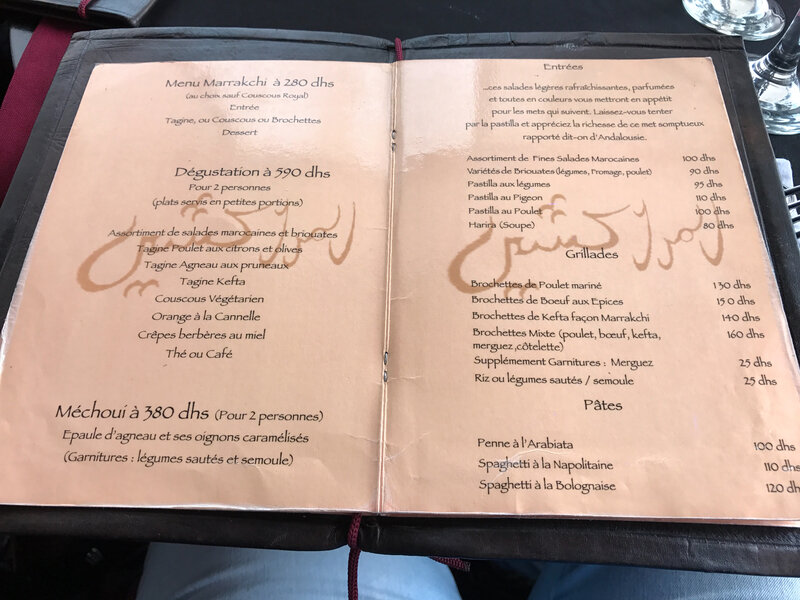 Menu Marrakchi à 280 dhs
(au choix sauf Couscous Royal)
Entrée
Tagine, ou Couscous ou Brochettes
Dessert
Dégustation à 590 dhs
Pour 2 personnes
(plats servis en petites portions)
Assortiment de salades marocaines et briouates
Tagine Poulet aux citrons et olives
Tagine Agneau aux pruneaux
Tagine Kefta
Couscous Végétarien
Orange à la Cannelle
Crêpes berbères au miel
Thé ou Café
Méchoui à 380 dhs (Pour 2 personnes)
Epaule d'agneau et ses oignons caramélisés
(Garnitures : légumes sautés et semoule)
Entrées
...ces salades légères rafraîchissantes, parfumées
et toutes en couleurs vous mettront en appétit
pour les mets qui suivent. Laissez-vous tenter
par la pastilla et appréciez la richesse de ce met somptueux
rapporté dit-on d'Andalousie.
Assortiment de Fines Salades Marocaines 100 dhs
Variétés de Briouates (légumes, Fromage, poulet) 90 dhs
Pastilla aux légumes 95 dhs
Pastilla au Pigeon 110 dhs
Pastilla au Poulet 100 dhs
Harira (Soupe) 80 dhs
Grillades
Brochettes de Poulet mariné 130 dhs
Brochettes de Boeuf aux Epices 150 dhs
Brochettes de Kefta façon Marrakchi 140 dhs
Brochettes Mixte (poulet, bœuf, kefta, 160 dhs
merguez ,côtelette)
Supplémement Garnitures : Merguez 25 dhs
Riz ou légumes sautés / semoule 25 dhs
Pâtes
Penne à l'Arabiata 100 dhs
Spaghetti à la Napolitaine 110 dhs
Spaghetti à la Bolognaise 120 dhs